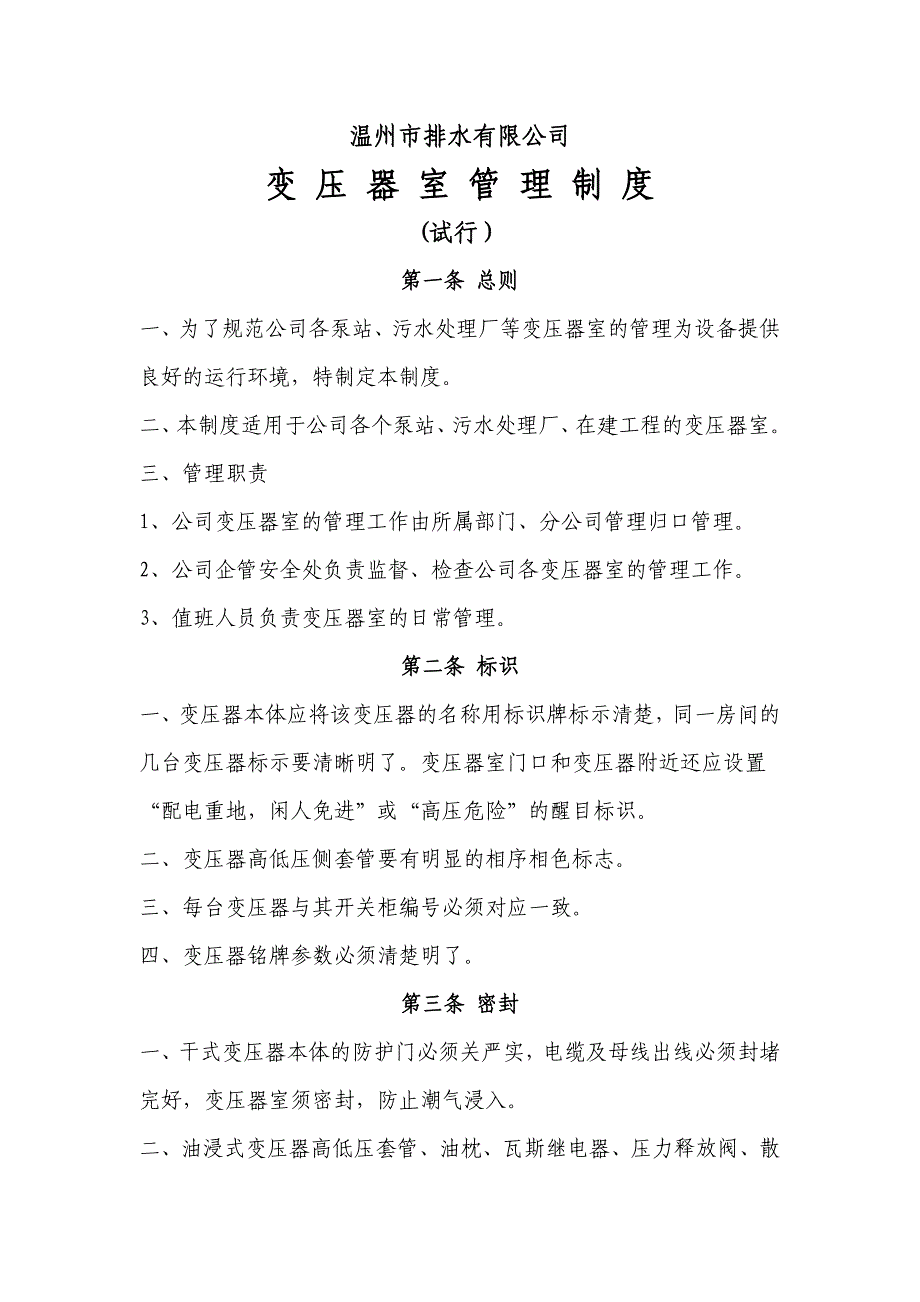 温州市排水有限公司
变 压 器 室 管 理 制 度
(试行)
第一条 总则
一、为了规范公司各泵站、污水处理厂等变压器室的管理为设备提供
良好的运行环境，特制定本制度。
二、本制度适用于公司各个泵站、污水处理厂、在建工程的变压器室。
三、管理职责
1、公司变压器室的管理工作由所属部门、分公司管理归口管理。
2、公司企管安全处负责监督、检查公司各变压器室的管理工作。
3、值班人员负责变压器室的日常管理。
第二条 标识
一、变压器本体应将该变压器的名称用标识牌标示清楚，同一房间的
几台变压器标示要清晰明了。变压器室门口和变压器附近还应设置
“配电重地，闲人免进”或“高压危险”的醒目标识。
二、变压器高低压侧套管要有明显的相序相色标志。
三、每台变压器与其开关柜编号必须对应一致。
四、变压器铭牌参数必须清楚明了。
第三条 密封
一、干式变压器本体的防护门必须关严实，电缆及母线出线必须封堵
完好，变压器室须密封，防止潮气浸入。
二、油浸式变压器高低压套管、油枕、瓦斯继电器、压力释放阀、散